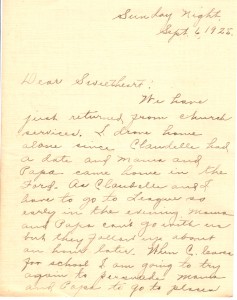 Sunday Night
Sept 6, 1925.
Dear Sweetheart:
We have
just returned from church
services. I drove home
alone since Claudelle had
a date and Mama and
Papa came home in the
Ford. As Claudelle and I
have to go to League so
early in the evening Mama
and Papa can't go with us
but they follow up about
an hour later. When C. leaves
for school I am going to try
again to persuade Mama
and Papa to go to